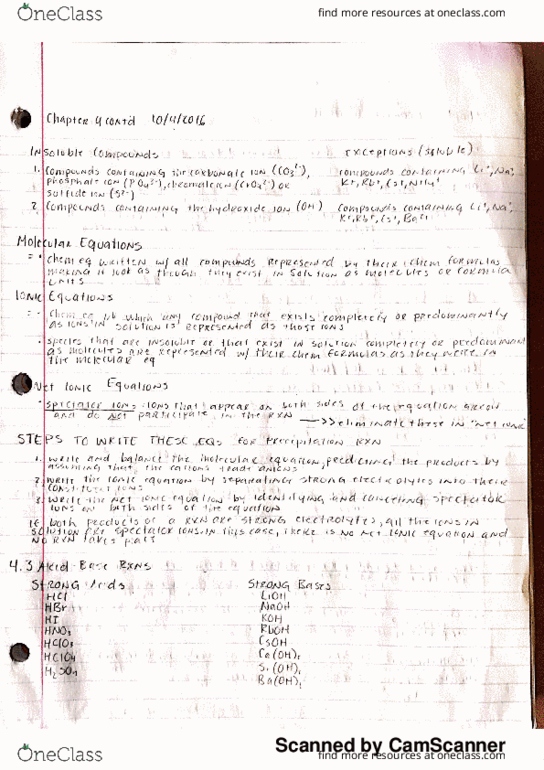 OneClass find more resources at oneclass.com
Chapter 4 contd 10/4/2016
Insoluble Compounds Exceptions (soluble)
1. compounds containing the carbonate ion (CO₃²⁻), compounds containing Li⁺, Na⁺,
phosphate ion (PO₄³⁻), chromate ion (CrO₄²⁻) or K⁺, Rb⁺, Cs⁺, NH₄⁺
sulfide ion (S²⁻)
2. compounds containing the hydroxide ion (OH⁻) compounds containing Li⁺, Na⁺,
K⁺, Rb⁺, Cs⁺, Ba²⁺
Molecular Equations
= • chem eq written w/ all compounds represented by their chem formulas
making it look as though they exist in solution as molecules or formula
units
Ionic Equations
= • chem eq in which any compound that exists completely or predominantly
as ions in solution is represented as those ions
• species that are insoluble or that exist in solution completely or predominant
as molecules are represented w/ their chem formulas as they were in
the molecular eq
Net Ionic Equations
• spectator ions: ions that appear on both sides of the equation arrow
and do not participate in the rxn →>> eliminate these in "net ionic"
STEPS TO WRITE THESE EQS for Precipitation RXN
1. write and balance the molecular equation, predicting the products by
assuming that the cations trade anions
2. write the ionic equation by separating strong electrolytes into their
constituent ions
3. write the net ionic equation by identifying and canceling spectator
ions on both sides of the equation
if both products of a rxn are strong electrolytes, all the ions in
solution are spectator ions. in this case, there is no net ionic equation and
no rxn takes place
4.3 Acid Base Rxns
Strong Acids Strong Bases
HCl LiOH
HBr NaOH
HI KOH
HNO₃ RbOH
HClO₃ CsOH
HClO₄ Ca(OH)₂
H₂SO₄ Sr(OH)₂
Ba(OH)₂
Scanned by CamScanner
OneClass find more resources at oneclass.com